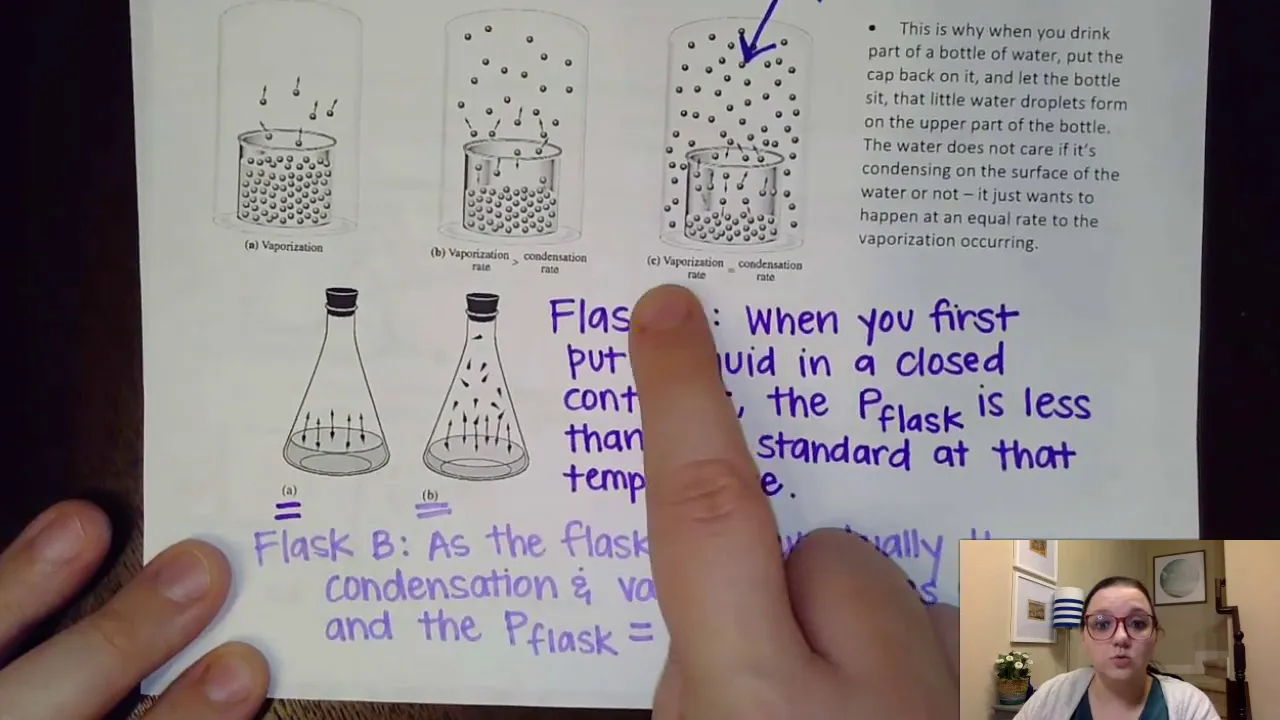 • This is why when you drink
part of a bottle of water, put the
cap back on it, and let the bottle
sit, that little water droplets form
on the upper part of the bottle.
The water does not care if it's
condensing on the surface of the
water or not – it just wants to
happen at an equal rate to the
vaporization occurring.
(a) Vaporization
(b) Vaporization rate > condensation rate
(c) Vaporization rate = condensation rate
Flas : When you first
put uid in a closed
cont , the Pflask is less
than standard at that
temp e.
(a)
(b)
Flask B: As the flask ually
condensation & va s
and the Pflask =